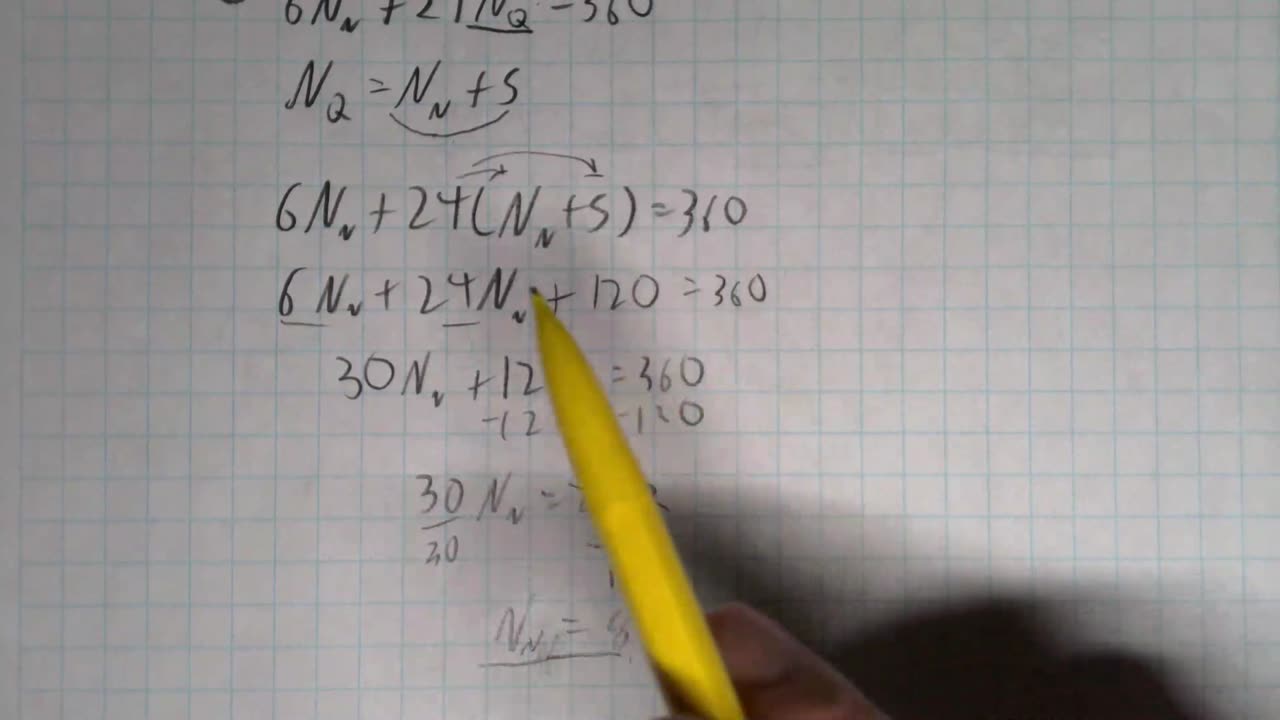 6Nₙ + 24N_Q = 360
N_Q = Nₙ + 5
6Nₙ + 24(Nₙ + 5) = 360
6Nₙ + 24Nₙ + 120 = 360
30Nₙ + 12 = 360
-12 -120
30Nₙ =
30
Nₙ = 8